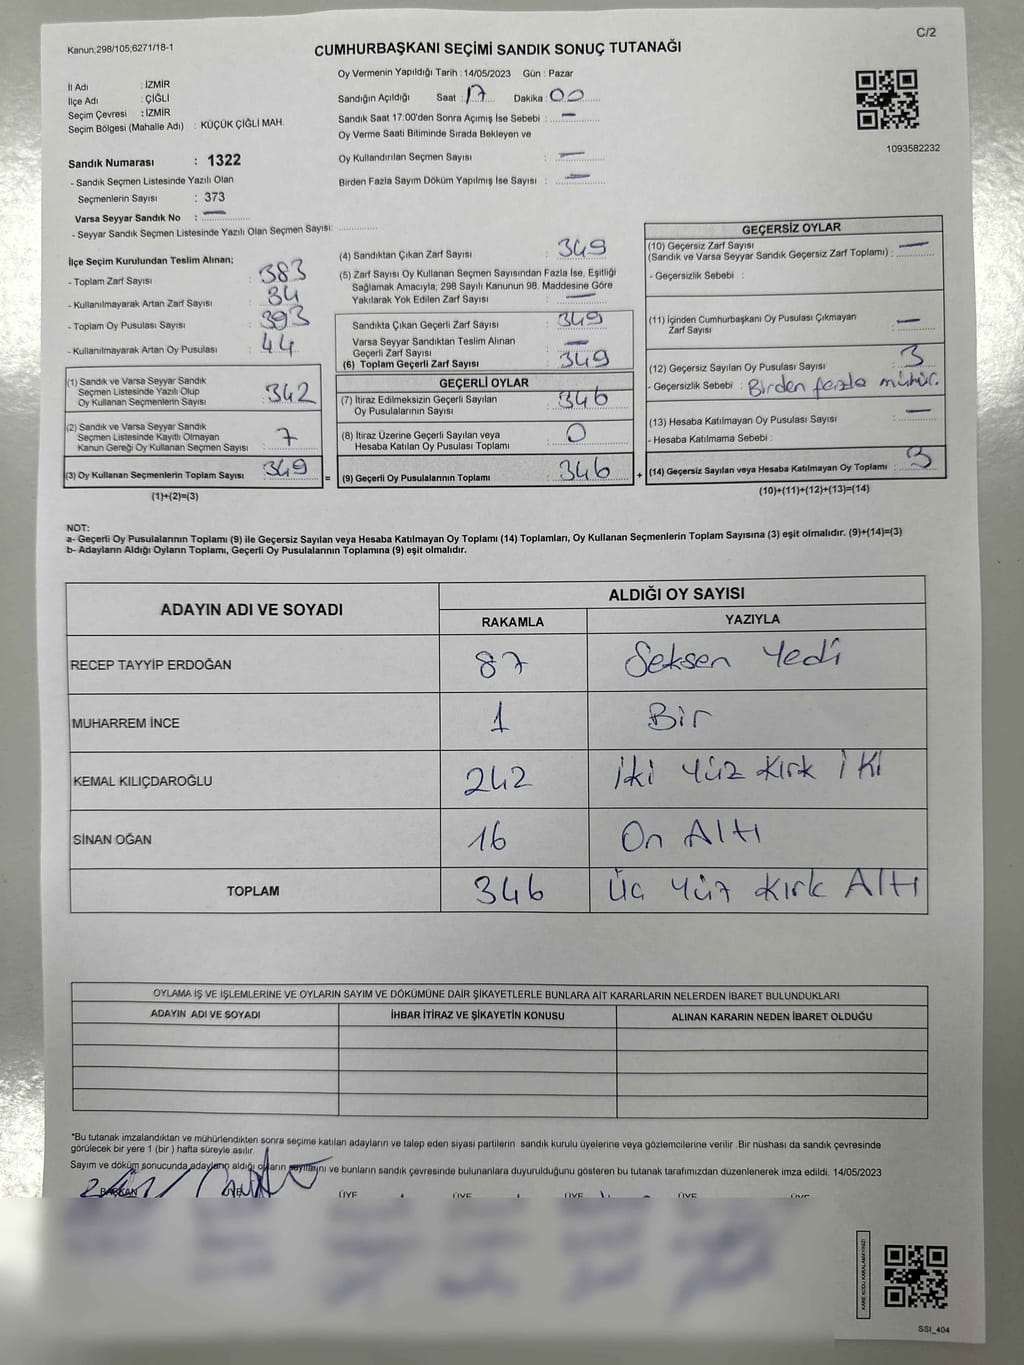 Kanun;298/105;6271/18-1
C/2
CUMHURBAŞKANI SEÇİMİ SANDIK SONUÇ TUTANAĞI
İl Adı : İZMİR
İlçe Adı : ÇİĞLİ
Seçim Çevresi : İZMİR
Seçim Bölgesi (Mahalle Adı) : KÜÇÜK ÇİĞLİ MAH.
Oy Vermenin Yapıldığı Tarih :14/05/2023 Gün : Pazar
Sandığın Açıldığı Saat : 17 Dakika : 00
Sandık Saat 17:00'den Sonra Açımış İse Sebebi : —
Oy Verme Saati Bitiminde Sırada Bekleyen ve
Oy Kullandırılan Seçmen Sayısı : —
Birden Fazla Sayım Döküm Yapılmış İse Sayısı : —
1093582232
Sandık Numarası : 1322
- Sandık Seçmen Listesinde Yazılı Olan
Seçmenlerin Sayısı : 373
Varsa Seyyar Sandık No : —
- Seyyar Sandık Seçmen Listesinde Yazılı Olan Seçmen Sayısı:
İlçe Seçim Kurulundan Teslim Alınan;
- Toplam Zarf Sayısı : 383
- Kullanılmayarak Artan Zarf Sayısı : 34
- Toplam Oy Pusulası Sayısı : 393
- Kullanılmayarak Artan Oy Pusulası : 44
(1) Sandık ve Varsa Seyyar Sandık
Seçmen Listesinde Yazılı Olup
Oy Kullanan Seçmenlerin Sayısı : 342
(2) Sandık ve Varsa Seyyar Sandık
Seçmen Listesinde Kayıtlı Olmayan
Kanun Gereği Oy Kullanan Seçmen Sayısı : 7
(3) Oy Kullanan Seçmenlerin Toplam Sayısı : 349
(1)+(2)=(3)
(4) Sandıktan Çıkan Zarf Sayısı : 349
(5) Zarf Sayısı Oy Kullanan Seçmen Sayısından Fazla İse, Eşitliği
Sağlamak Amacıyla; 298 Sayılı Kanunun 98. Maddesine Göre
Yakılarak Yok Edilen Zarf Sayısı : —
Sandıkta Çıkan Geçerli Zarf Sayısı : 349
Varsa Seyyar Sandıktan Teslim Alınan
Geçerli Zarf Sayısı : —
(6) Toplam Geçerli Zarf Sayısı : 349
GEÇERLİ OYLAR
(7) İtiraz Edilmeksizin Geçerli Sayılan
Oy Pusulalarının Sayısı : 346
(8) İtiraz Üzerine Geçerli Sayılan veya
Hesaba Katılan Oy Pusulası Toplamı : 0
= (9) Geçerli Oy Pusulalarının Toplamı : 346 +
GEÇERSİZ OYLAR
(10) Geçersiz Zarf Sayısı
(Sandık ve Varsa Seyyar Sandık Geçersiz Zarf Toplamı) : —
- Geçersizlik Sebebi :
(11) İçinden Cumhurbaşkanı Oy Pusulası Çıkmayan
Zarf Sayısı : —
(12) Geçersiz Sayılan Oy Pusulası Sayısı : 3
- Geçersizlik Sebebi : Birden fazla mühür.
(13) Hesaba Katılmayan Oy Pusulası Sayısı : —
- Hesaba Katılmama Sebebi :
(14) Geçersiz Sayılan veya Hesaba Katılmayan Oy Toplamı : 3
(10)+(11)+(12)+(13)=(14)
NOT:
a- Geçerli Oy Pusulalarının Toplamı (9) ile Geçersiz Sayılan veya Hesaba Katılmayan Oy Toplamı (14) Toplamları, Oy Kullanan Seçmenlerin Toplam Sayısına (3) eşit olmalıdır. (9)+(14)=(3)
b- Adayların Aldığı Oyların Toplamı, Geçerli Oy Pusulalarının Toplamına (9) eşit olmalıdır.
ADAYIN ADI VE SOYADI
ALDIĞI OY SAYISI
RAKAMLA YAZIYLA
RECEP TAYYİP ERDOĞAN 87 Seksen Yedi
MUHARREM İNCE 1 Bir
KEMAL KILIÇDAROĞLU 242 İki Yüz Kırk İKİ
SİNAN OĞAN 16 On Altı
TOPLAM 346 Üç Yüz Kırk Altı
OYLAMA İŞ VE İŞLEMLERİNE VE OYLARIN SAYIM VE DÖKÜMÜNE DAİR ŞİKAYETLERLE BUNLARA AİT KARARLARIN NELERDEN İBARET BULUNDUKLARI
ADAYIN ADI VE SOYADI İHBAR İTİRAZ VE ŞİKAYETİN KONUSU ALINAN KARARIN NEDEN İBARET OLDUĞU
*Bu tutanak imzalandıktan ve mühürlendikten sonra seçime katılan adayların ve talep eden siyasi partilerin sandık kurulu üyelerine veya gözlemcilerine verilir .Bir nüshası da sandık çevresinde
görülecek bir yere 1 (bir ) hafta süreyle asılır.
Sayım ve döküm sonucunda adayların aldığı oyların sayılarını ve bunların sandık çevresinde bulunanlara duyurulduğunu gösteren bu tutanak tarafımızdan düzenlenerek imza edildi. 14/05/2023
BAŞKAN ÜYE ÜYE ÜYE ÜYE ÜYE ÜYE
KARE KODU KARALAMAYINIZ!
SSI_404